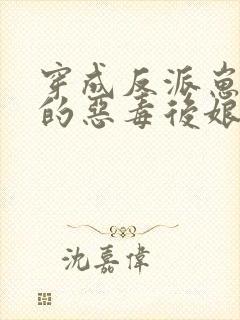 穿成反派崽
的惡毒後娘
沈嘉偉